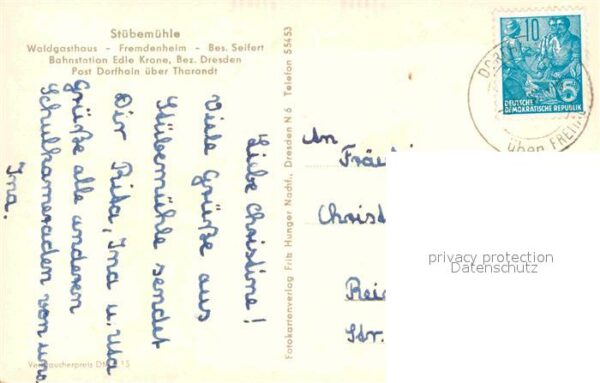 Stübemühle
Waldgasthaus - Fremdenheim - Bes. Seifert
Bahnstation Edle Krone, Bez. Dresden
Post Dorfhain über Tharandt
Liebe Christine!
Viele Grüße aus
Stübemühle sendet
Dir Rita, Ina u. Uta
Grüße alle anderen
Schulkameraden von uns.
Ina.
Fotokartenverlag Fritz Hunger Nachf., Dresden N 6 Telefon 55453
An
Christ
Str.
10
5
DEUTSCHE
DEMOKRATISCHE REPUBLIK
über
privacy protection
Datenschutz